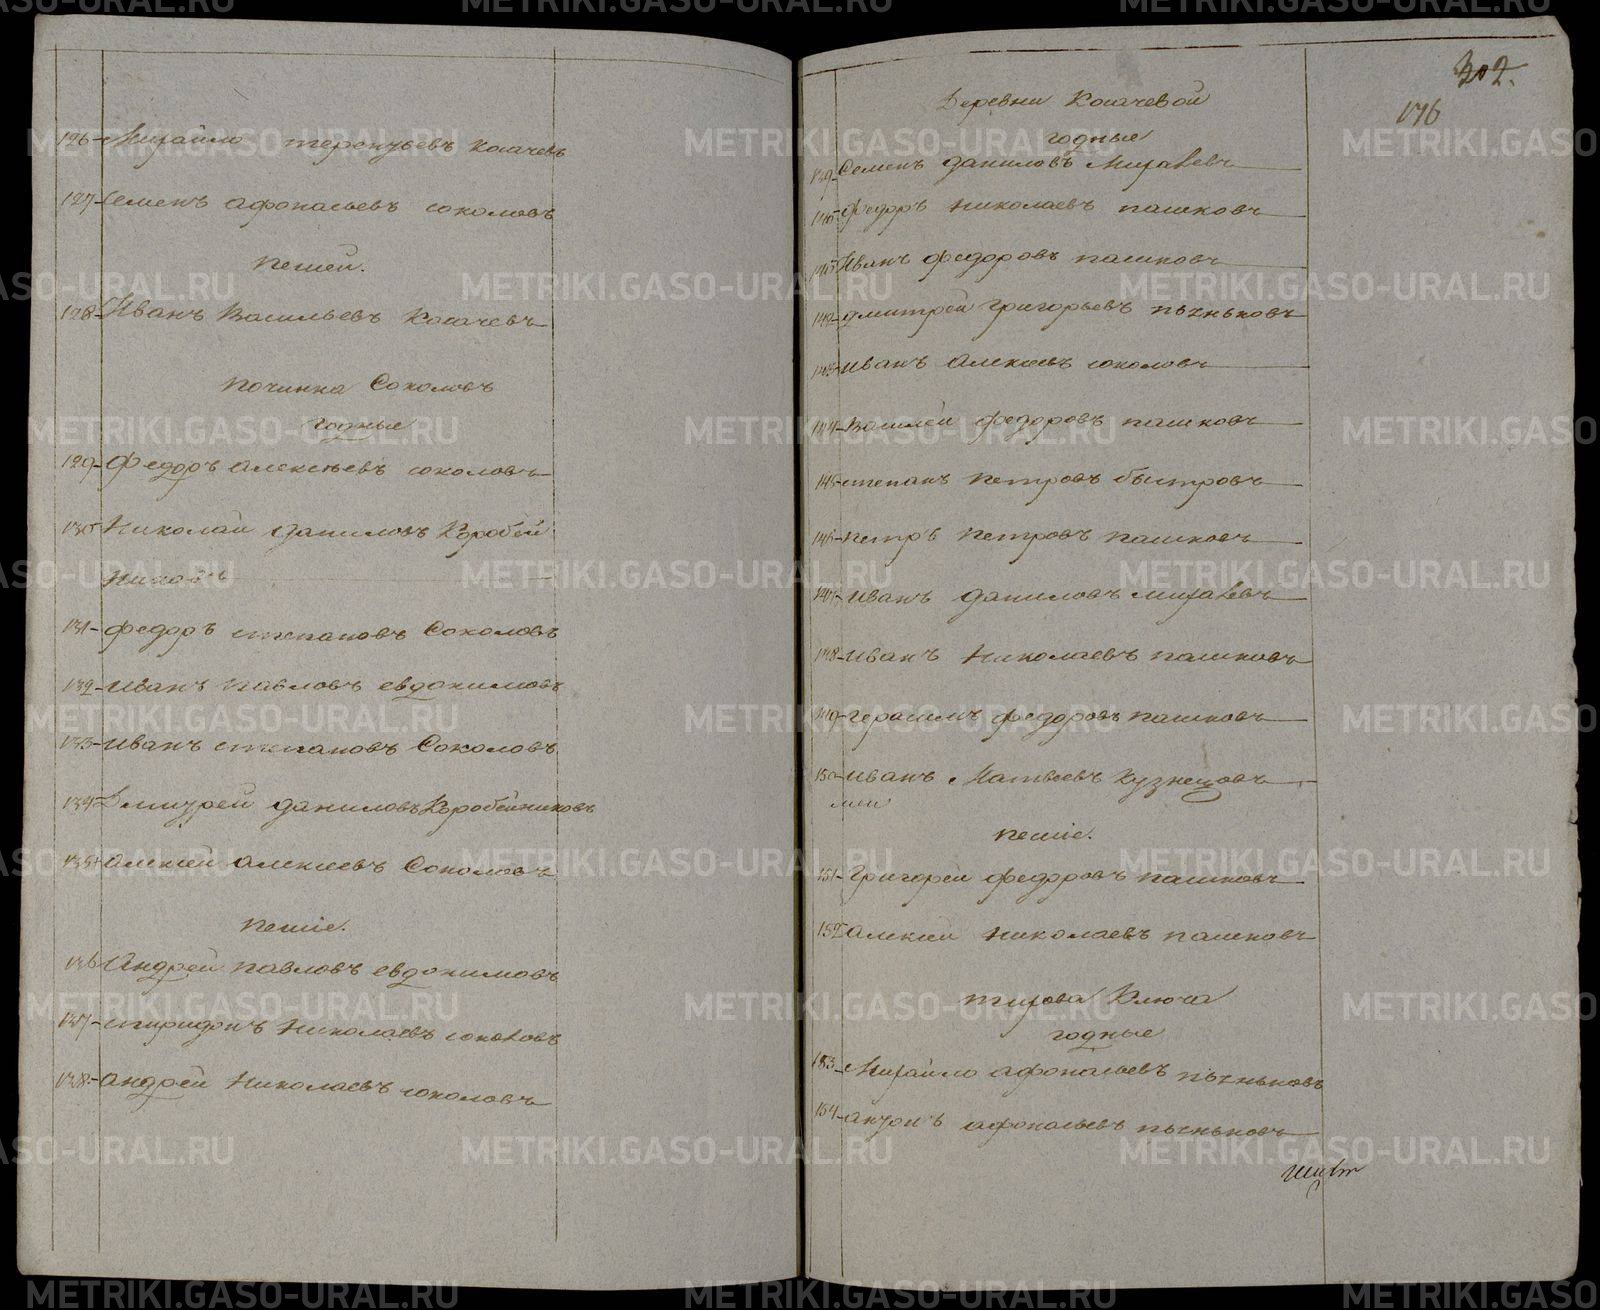 126 Михайло терентьевъ косачевъ
127 Семенъ афонасьевъ соколовъ
пешей.
128 Иванъ Васильевъ Косачевъ
починка Соколовъ
годные
129 Федоръ алексѣевъ соколовъ
130 Николай даниловъ Коробей
никовъ
131 федоръ степановъ Соколовъ
132 иванъ павловъ евдокимовъ
133 иванъ степановъ Соколовъ
134 Дмитрей даниловъ Коробейниковъ
135 алексей алексеевъ Соколовъ
пешіе.
136 Андрей павловъ евдокимовъ
137 спиридонъ николаевъ соколовъ
138 андрей николаевъ соколовъ
302.
176
Деревни Косачевой
годные
139 Семенъ даниловъ
140 федоръ николаевъ пашковъ
Иванъ федоровъ пашковъ
142 дмитрей григорьевъ пыжьковъ
143 иванъ алексеевъ соколовъ
144 Василей федоровъ пашковъ
145 степанъ петровъ быстровъ
146 петръ петровъ пашковъ
147 иванъ даниловъ
148 иванъ николаевъ пашковъ
149 герасимъ федоровъ пашковъ
150 иванъ Матвеевъ Кузнецовъ
пешіе.
151 Григорей федоровъ пашковъ
152 алексей николаевъ пашковъ
Ключа
годные
153 Михайло афонасьевъ пыжьковъ
154 антонъ афонасьевъ пыжьковъ
METRIKI.GASO-URAL.RU